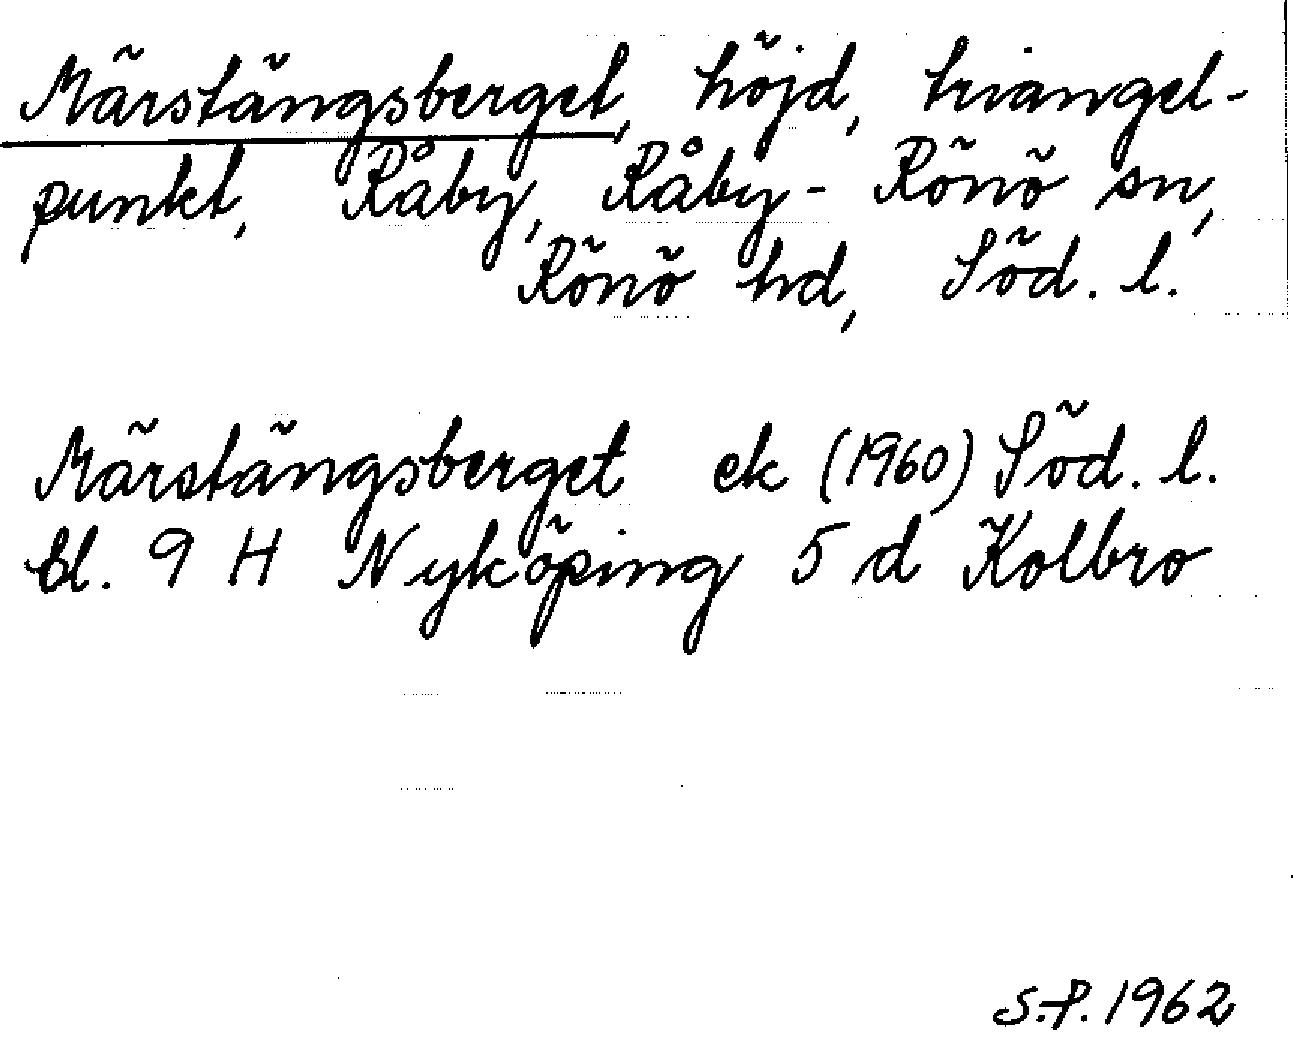 Märstängsberget, höjd, triangel-
punkt, Råby, Råby-Rönö sn,
Rönö hd, Söd. l.
Märstängsberget ek (1960) Söd. l.
bl. 9 H Nyköping 5 d Kolbro
S.P. 1962